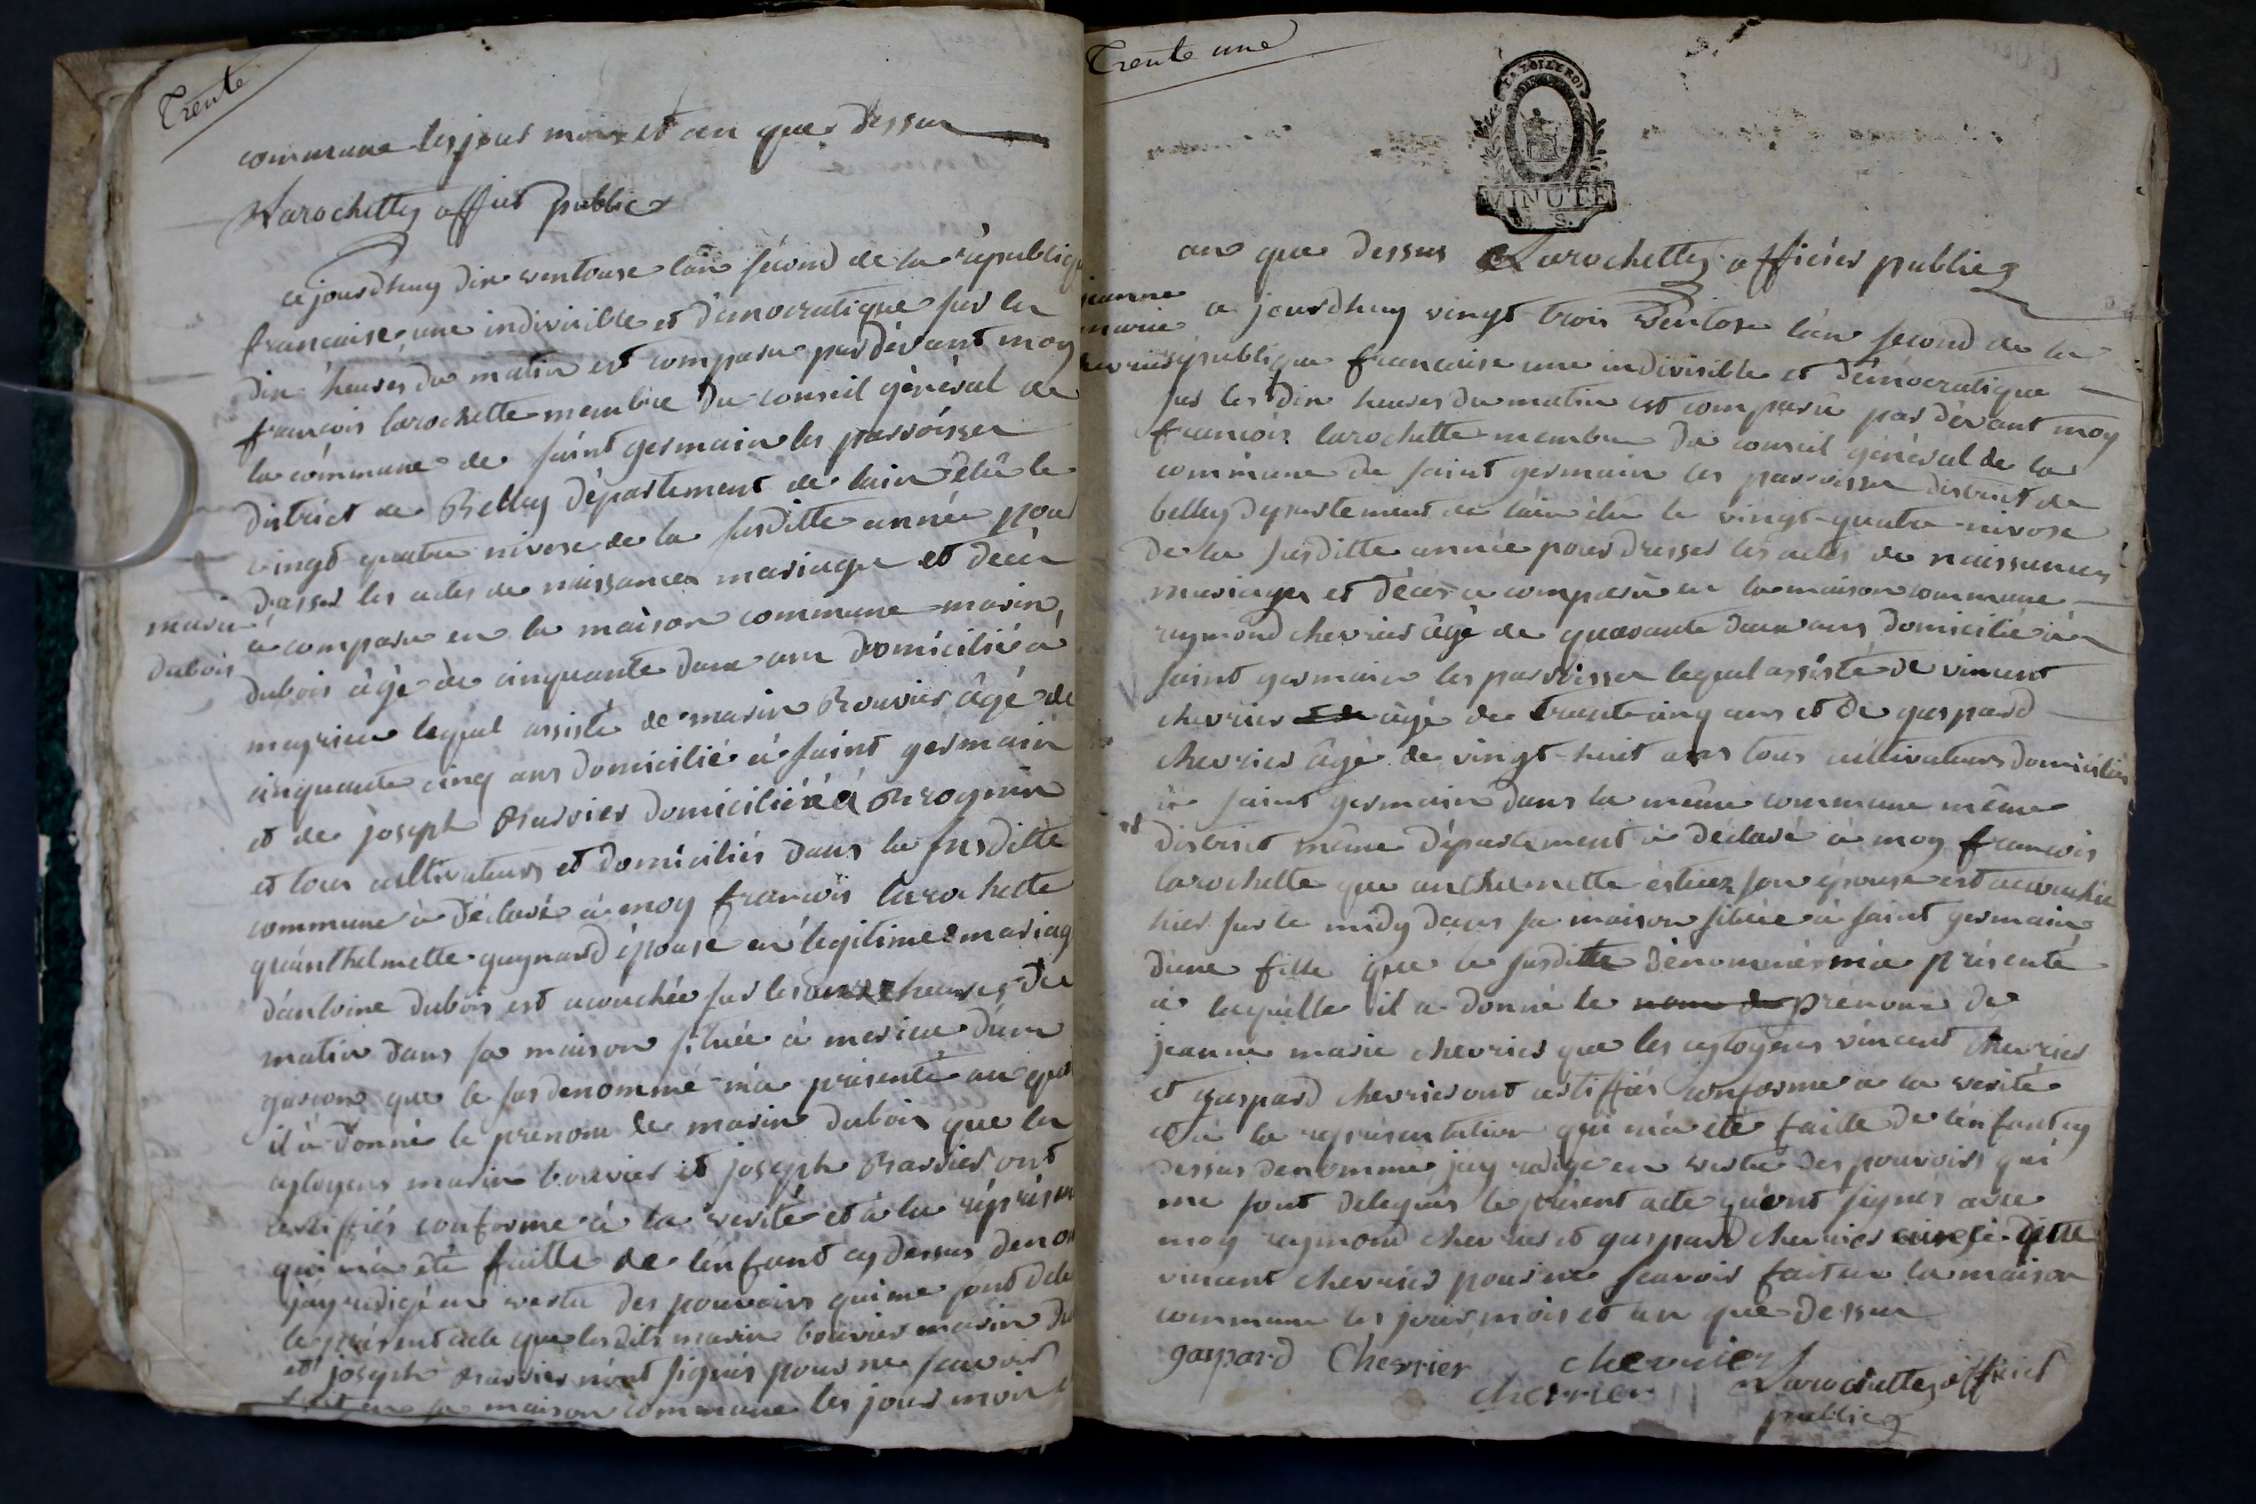 Trente
commune les jour mois et an que dessus
Larochette officier public
ce jourdhuy dix ventose l'an second de la république
francaise une indivisible et démocratique sur les
dix heures du matin est comparu par dévant moy
francois larochette membre du conseil général de
la commune de saint germain les parroisses
district de Belley département de lain élû le
vingt quatre nivose de la susditte année pour
dresser les actes de naissances mariages et décès
marin
dubois
a comparu en la maison commune marin
dubois âgé de cinquante deux ans domicilié à
meyrieu lequel assisté de marin Bouvier âgé de
cinquante cinq ans domicilié à saint germain
et de joseph Barvier domicilié à Brognin
et tous cultivateurs et domiciliés dans la susditte
commune à déclaré à moy francois larochette
qu'anthelmette guynard épouse en légitime mariag
d'antoine dubois est acouchée sur les onze heures du
matin dans sa maison située à merieu d'un
garcon que le susdenommé m'a présenté au quel
il à donné le prénom de marin dubois que les
cytoyens marin bouvier et joseph Barvier ont
certiffiés conforme à la verité et à la réprésen
qui m'a été faitte de l'enfant cy dessus denom
jay redigé en vertu des pouvoirs qui me sont dele
le présent acte que lesdits marin bouvier marin du
et joseph Barvier n'ont signés pour ne scavoir
fait en la maison commune les jour mois
Trente une
MINUTE
an que dessus Larochette officier public
jeanne
marie
chevrier
ce jourdhuy vingt trois ventose l'an second de la
république francaise une indivisible et démocratique
sur les dix heures du matin est comparu par dévant moy
francois larochette membre du conseil général de la
commune de saint germain les parroisses district de
belley departement de l'ain élu le vingt quatre nivose
de la susditte année pour dresser les actes de naissances
mariages et décès a comparu en la maison commune
reymond chevrier âgé de quarante deux ans domicilié à
saint germain les parroisses lequel assisté de vincent
chevrier âgé de trente cinq ans et de gaspard
chevrier âgé de vingt huit ans tous cultivateurs domiciliés
à saint germain dans la même commune même
district même département à déclaré à moy francois
larochette que anthelmette son épouse est acouchée
hier sur le midy dans sa maison située à saint germain
d'une fille que le susditte dénommé m'a présenté
à laquelle il a donné le nom de prénom de
jeanne marie chevrier que les cytoyens vincent chevrier
et gaspard chevrier ont certiffiés conforme à la verité
et à la representation qui m'a été faitte de l'enfant cy
dessus denommé jay redigé en vertu des pouvoirs qui
me sont delegués le présent acte qu'ont signés avec
moy reymond chevrier et gaspard chevrier
vincent chevrier pour ne scavoir fait en la maison
commune les jour mois et an que dessus
gaspard Chevrier chevrier
chevrier Larochette officier
public